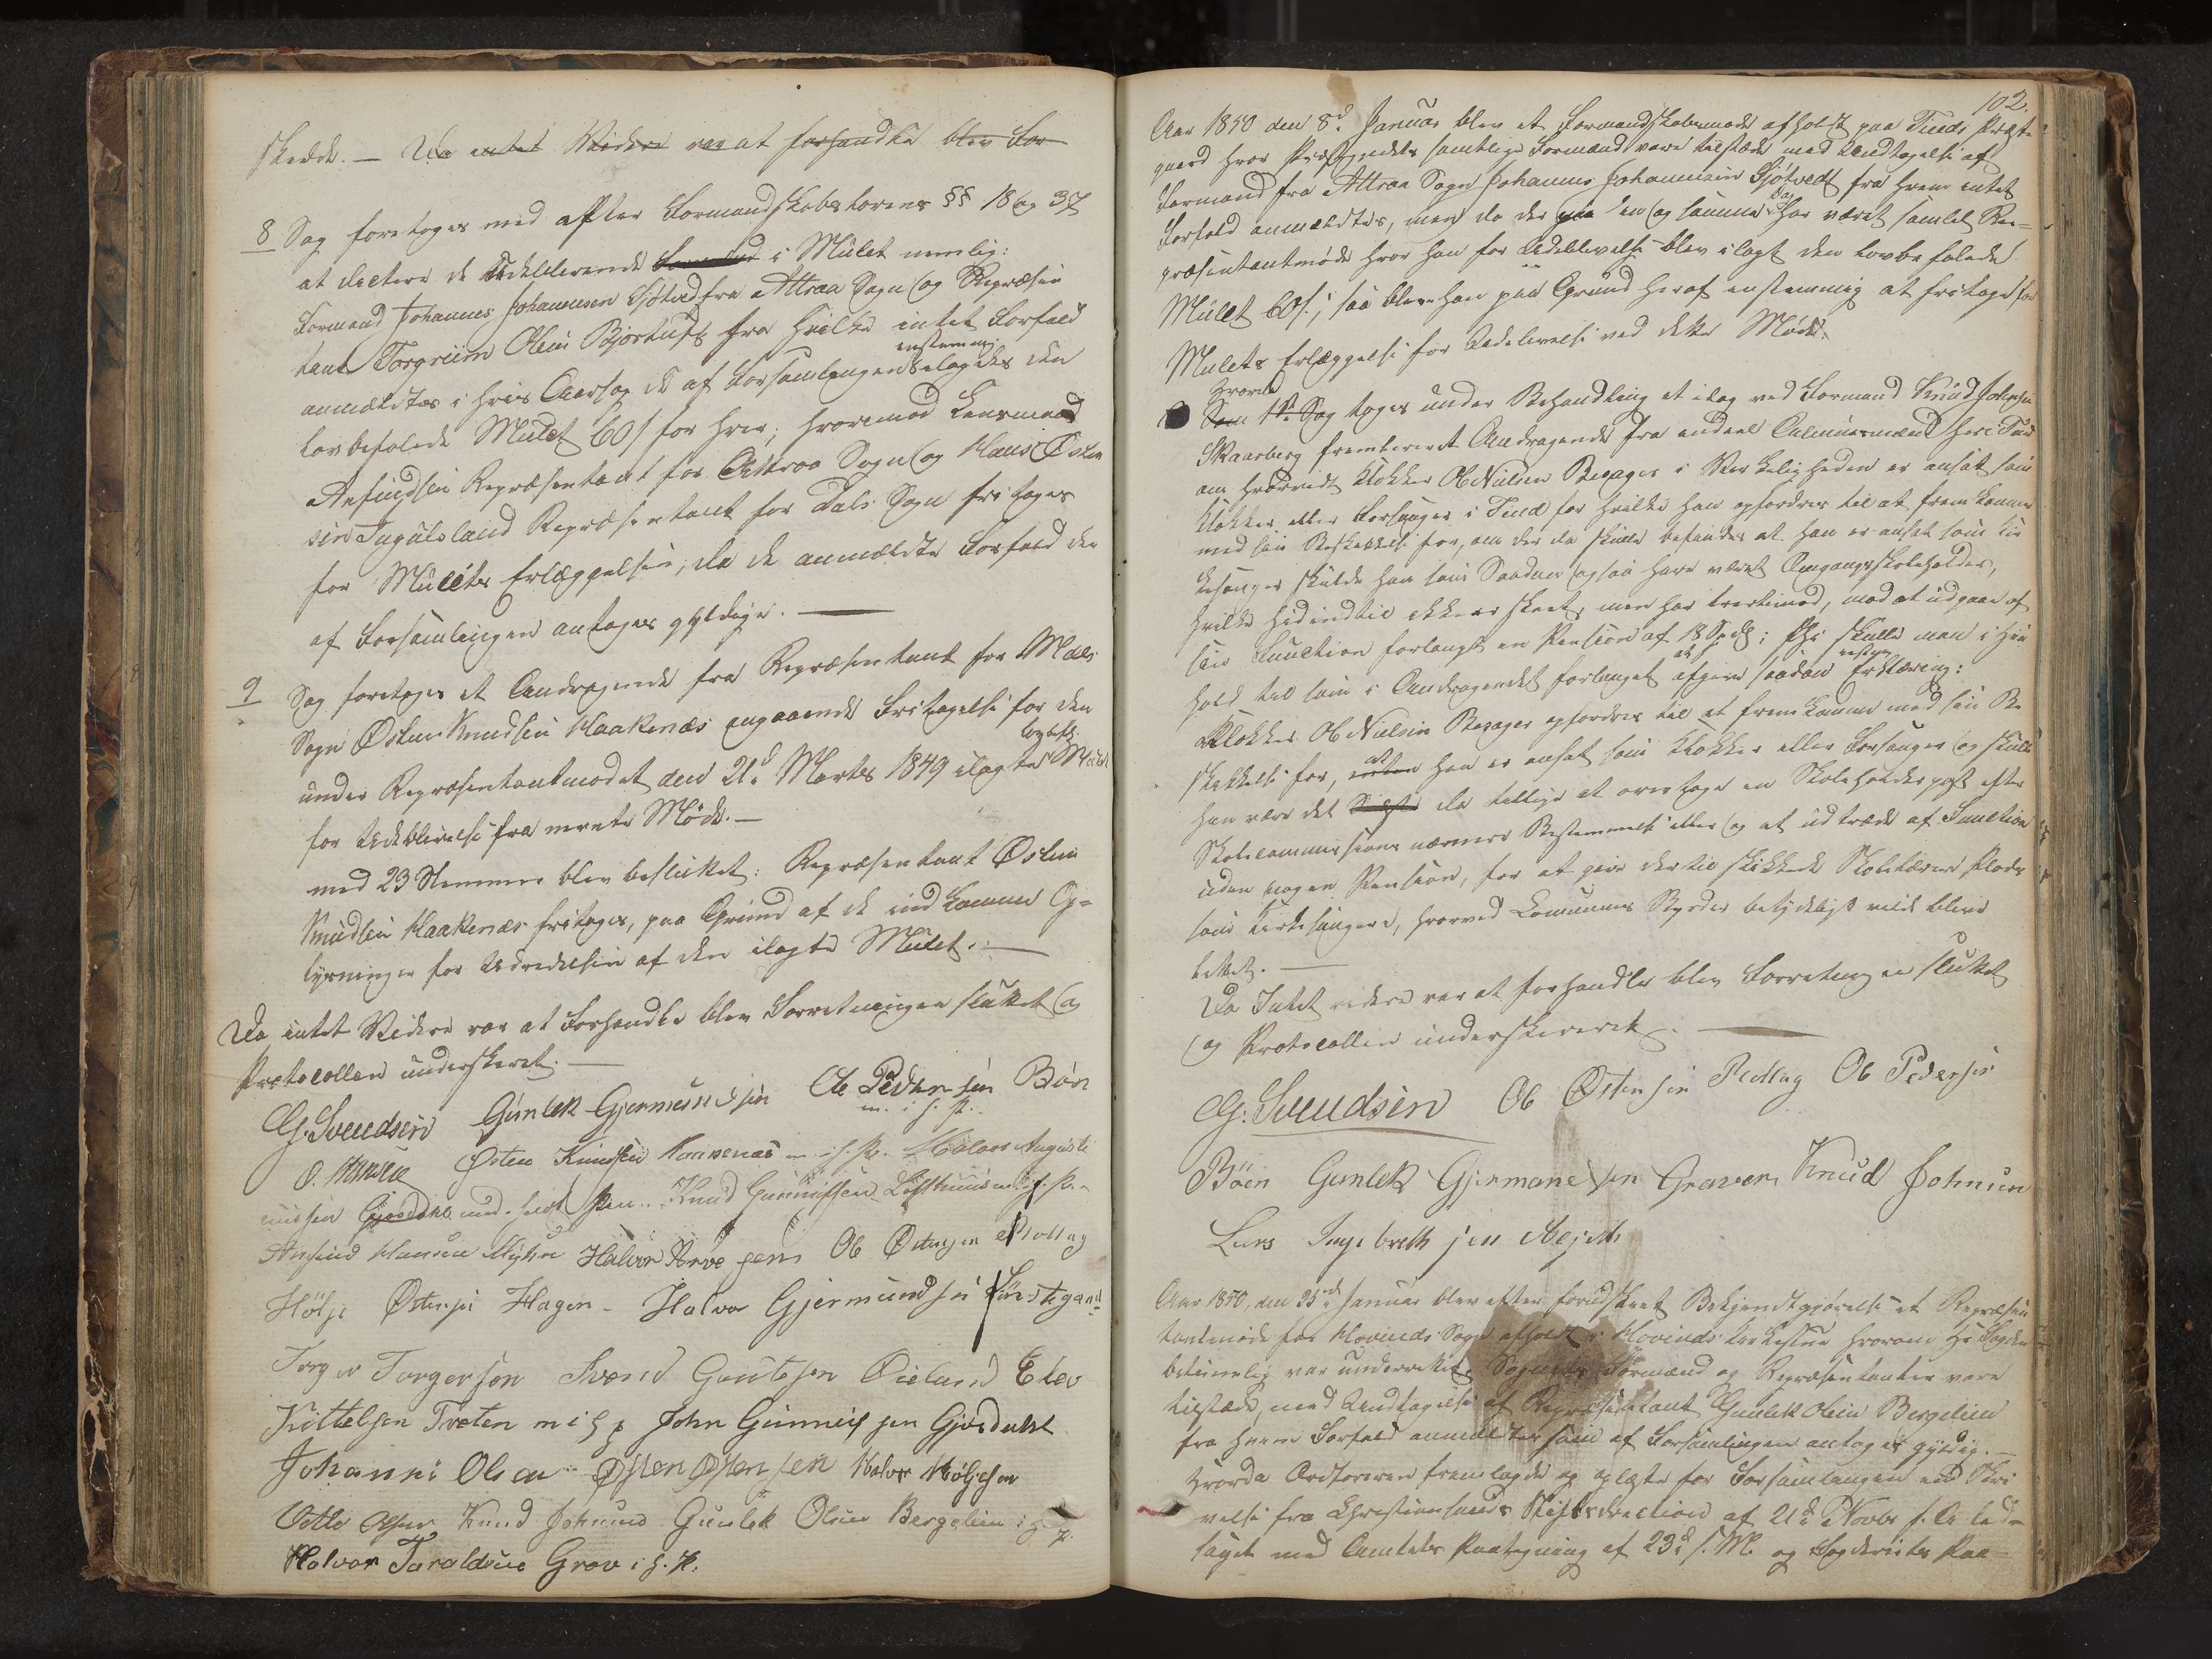 skede. — Da intet Videre var at forhandle blev For
8 Sag foretoges med efter Formandskabslovens §§ 18 og 37
at dictere de Udeblevende i Mulct nemlig:
Formand Johannes Johannesen Sjøtved fra Attraa Sogn og Repræsen
tant Torgrim Olsen Bjørtuft fra hvilke intet Forfald
enstemmig
anmældtes i hvis Aarsag de af Forsamlingen ilagdes den
lovbefalede Mulct 60 s for hver; hvorimod Lensmand
Anfindsen Repræsentant for Attraa Sogn og Hans Østen
sen Ingulsland Repræsentant for Dals Sogn fritages
for Mulcts Erlæggelsen, da de anmældte Forfald der
af Forsamlingen antoges gyldige. —
9 Sag foretoges et Andragende fra Repræsentant for Mæls
Sogn Østen Knudsen Haakenæs angaaende Fritagelse for den
under Repræsentantmødet den 21d Marts 1849 ilagte Mulct
for Udeblivelse fra nevnte Møde. —
med 23 Stemmer blev besluttet: Repræsentant Østen
Knudsen Haakenæs fritages, paa Grund af de indkomne Op=
lysninger for Udredelsen af den ilagte Mulct. —
Da intet Videre var at Forhandle blev Forretningen sluttet og
Protocollen underskrevet. —
G. Svendsen Gunlek Gjermundsen Ole Pedersen Bøen
m. i. h. P.
O. Hansen Østen Knudsen Haakenæs m. i. h. P. Halvor Augusti
nusen Gjøsdahl med holdt Pen. Knud Gunnulfsen Løfthuus m. i. h. P.
Anfind Hansen Myhre Halvor Torve sen Ole Østensen Rollag
Hølje Østensen Hagen - Halvor Gjermundsen Kirstigard
Torger Torgersen Svend Goutesen Øieland Elev
Kittelsen Traten m i h p John Gunnulfsen Gjøsdahl
Johannis Olsen Østen Østensen Halvor Høljesen
Vetle Olsen Knud Johnsen Gunlek Olsen Bergelien i h
P.
Halvor Taraldsen Grov i. h. P.
102.
Aar 1850 den 8d Januar blev et Formandskabsmøde afholdt paa Tinds Præste
gaard hvor Præstegjeldets samtlige Formænd vare tilstæde med Undtagelse af
Formand fra Attraa Sogn Johannes Johannesen Sjøtvedt fra hvem intet
Dag
Forfald anmældtes, men da der paa een og samme har været samlet Re=
præsentantmøde hvor han for Udeblivelse blev ilagt den lovbefalede
Mulct 60 s; saa blev han paa Grund heraf enstemmig at fritage for
Mulcts Erlæggelse for Udeblivelse ved dette Møde.
Hvorved
Som 1ste Sag toges under Behandling et idag ved Formand Knud Johnsen
Skaarberg fremleveret Andragende fra endeel Almuesmænd her i Tind
om hvorvidt Klokker Ole Nielsen Besager i Virkeligheden er ansat som
Klokker eller Forsanger i Tind for hvilke han opfordres til at fremkomme
med sin Beskikkelse for, om der da skulde befindes at han er ansat som Kir
kesanger skulde han som Saadan ogsaa have været Omgangsskoleholder,
hvilke hidindtil ikke er skeet, men har tvertimod, mod at udgaae af
sin Function forlangt en Pension af 18 Spd; Thi skulde man i Hen
hold til som i Andragendet forlanget afgive saadan Erklæring:
Klokker Ole Nielsen Besager opfordres til at fremkomme med sin Be
at
skikkelse for, han er ansat som Klokker eller Forsanger og skulde
han være det da tillige at overtage en Skoleholderpost efter
Skolecommissions nærmere Bestemmelse eller og at udtræde af Function
uden nogen Pension, for at give dertil skikkede Skolelærere Plads
som Kirkesangere, hvorved Communens Byrder betydeligt vilde blive
lettet. —
Da Intet videre var at forhandle blev Forretningen sluttet
og Protocollen underskrevet. —
G. Svendsen Ole Østensen Rollag Ole Pedersen
Bøen Gunlek Gjermundsen Graven Knud Johnsen
Lars Ingebreth sen
Aar 1850, den 25de Januar blev efter forudskeet Bekjendtgjørelse et Repræsen
tantmøde for Hovinds Sogn afholdt i Hovinds Kirkestue hvorom Hr Fogden
betimelig var underrettet. Sognets Formænd og Repræsentanter vare
tilstæde, med Undtagelse af Repræsentant Gunlek Olsen Bergelien
fra hvem Forfald anmældtes som af Forsamlingen antoges gyldig. —
Hvorda Ordføreren fremlagde og oplæste for Forsamlingen en Skri
velse fra Christiansands Stiftsdirection af 21de Novbr f. A. led=
saget med Amtets Paategning af 23d s. M. og Fogderiets Paa=